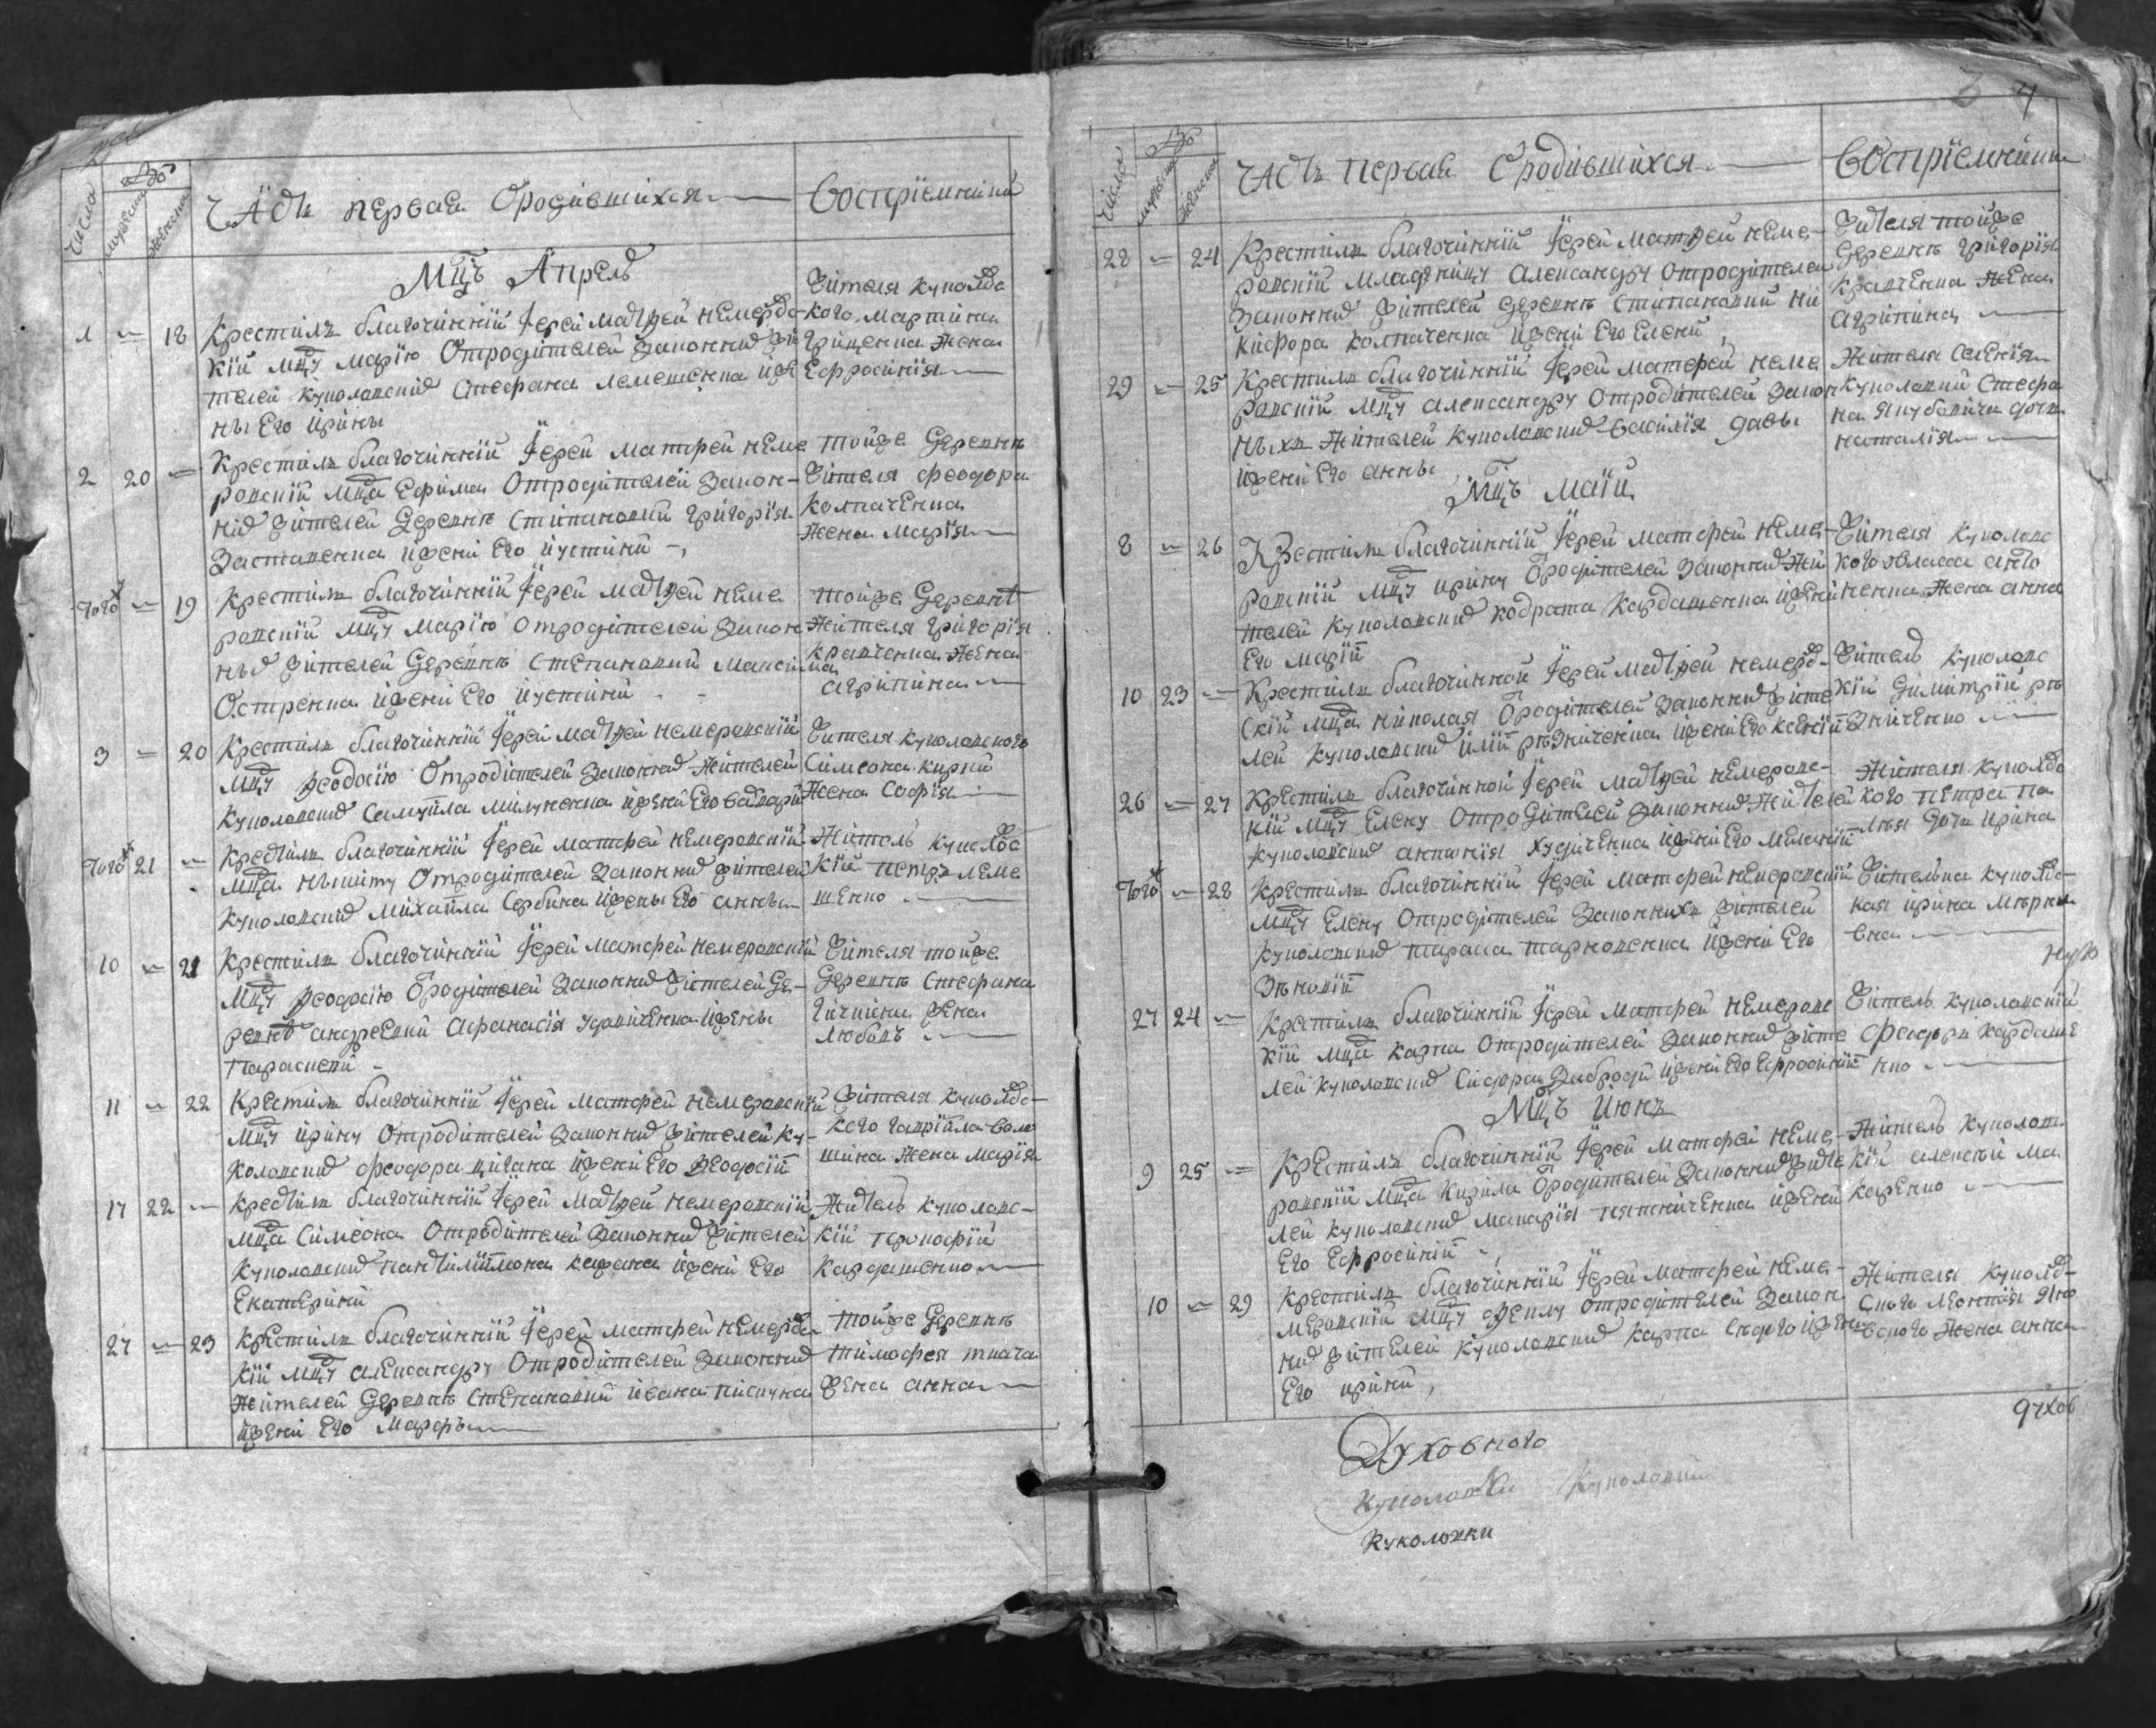 Число
мужеска
женска
ЧАСТЬ первая Ородившихся
Воспріемники
Мцъ Апрель
1 18 Крестилъ благочинній Іерей Матѳей немеровс
кій мцу Марію Отродителей законних жи
телей куколовских Стефана лемешенка ижє
ны Его Ирины
Жителя куколовс
кого мартина
Гриценка жена
Ефросинія
2 20 Крестилъ благочинній Іерей Матфей неме
ровскій мца Ефима Отродителей закон
них жителей деревнѣ Степановки Григорія
Заставенка ижени Его Иустини
тойже деревнѣ
жителя феодора
колпаченка
жена Марія
Того 19 Крестилъ благочинній Іерей Матѳей неме
ровскій мцу Марію Отродителей закон
ных жителей деревнѣ Степановки Максима
Остренка ижени Его Иустини
тойже деревнѣ
жителя Григорія
кравченка жена
агрипина
3 20 Крестилъ благочинній Іерей Матѳей немеровскій
мцу Ѳеодосію Отродителей законних жителей
куколовских Самуила ижени Его варвари
Жителя куколовского
Симеона
жена Софія
Того 21 Крестилъ благочинній Іерей Матфей немеровскій
мца Никиту Отродителей законних жителей
куколовских Михаила Сербина ижены Его анны
Житель куколовс
кій петръ леме
шенко
10 21 Крестилъ благочинній Іерей Матфей немеровскій
мцу Ѳеодосію Ородителей законних жителей де
ревнѣ андреевки Афанасія ижены
Параскеви
Жителя тойже
деревнѣ Стефана
жена
любовъ
11 22 Крестилъ благочинній Іерей Матфей немеровскій
мцу Ирину Отродителей законних жителей ку
коловских феодора цигана ижени Его Ѳеодосіи
Жителя куколовс
кого гавріила воло
шина жена Марія
17 22 Крестилъ благочинній Іерей Матѳей немеровскій
мца Симеона Отродителей законних жителей
куколовских пантилиимона ижени Его
Екатерини
Житель куколовс
кій
кардашенко
27 23 Крестилъ благочинній Іерей Матфей немеровс
кій мцу александру Отродителей законних
жителей деревнѣ Степановки ивана пискуна
ижени Его Марфы
тойже деревнѣ
тимофея ткача
жена анна
4
Число
мужеска
женска
ЧАСТЬ первая Ородившихся
Воспріемники
28 24 Крестилъ благочинній Іерей Матѳей неме
ровскій младеницу александру Отродителей
законних жителей деревнѣ Степановки Ни
кифора колпаченка ижени Его Елени
Жителя тойже
деревнѣ григорія
кравченка жена
агрипина
29 25 Крестилъ благочинній Іерей Матфей неме
ровскій мцу александру Отродителей закон
ныхъ жителей куколовских василія
ижени Его анны
Жителя
куколовки Стефа
на якубовича дочь
наталія
Мцъ маїи
8 26 Крестилъ благочинній Іерей Матфей неме
ровскій мцу ирину Ородителей законних жи
телей куколовских кодрата кардашенка ижени
Его Маріи
Жителя куколовс
кого власа анто
ненка жена анна
10 23 Крестилъ благочинной Іерей Матѳей немеров
скій мца николая Ородителей законних жите
лей куколовских иліи рѣзниченка ижени Его ксеніи
Житель куколовс
кій димитрій рѣ
зниченко
26 27 Крестилъ благочинной Іерей Матѳей немеровс
кій мцу Елену Отродителей законних жителей
куколовских антонія худиченка ижени Его Меланіи
Жителя куколовс
кого петра па
дочь ирина
Того 28 Крестилъ благочинній Іерей Матфей немеровскій
мцу Елену Отродителей законнихъ жителей
куколовских тараса тарновенка ижени Его
Зѣновіи
Жителька куколовс
кая ирина
вна
27 24 Крестилъ благочинній Іерей Матфей немеровс
кій мца карпа Отродителей законних жите
лей куколовских Сидора Заброди ижени Его Ефросиніи
Житель куколовскій
феодоръ кардаше
нко
Мцъ Июнъ
9 25 Крестилъ благочинній Іерей Матфей неме
ровскій мца Кирила Ородителей законних жите
лей куколовских макарія пятниченка ижени
Его Ефросиніи
Житель куколов
кій алексѣй Ма
каренко
10 29 Крестилъ благочинній Іерей Матфей неме
меровскій мцу Ѳеклу отродителей закон
них жителей куколовских карпа ижени
Его ирини
Жителя куколов
ского леонтія яно
вского жена анна
Духовного
Куколовки Куколовки
Куколовки